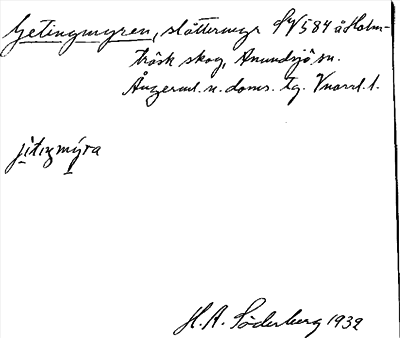 Getingmyren, slåttermyr fr 584 å Holm-
träsk skog, Anundsjö sn.
Ångerml. n. doms. tg. Vnorrl. l.
jitiŋmýra
H. A. Söderberg 1932